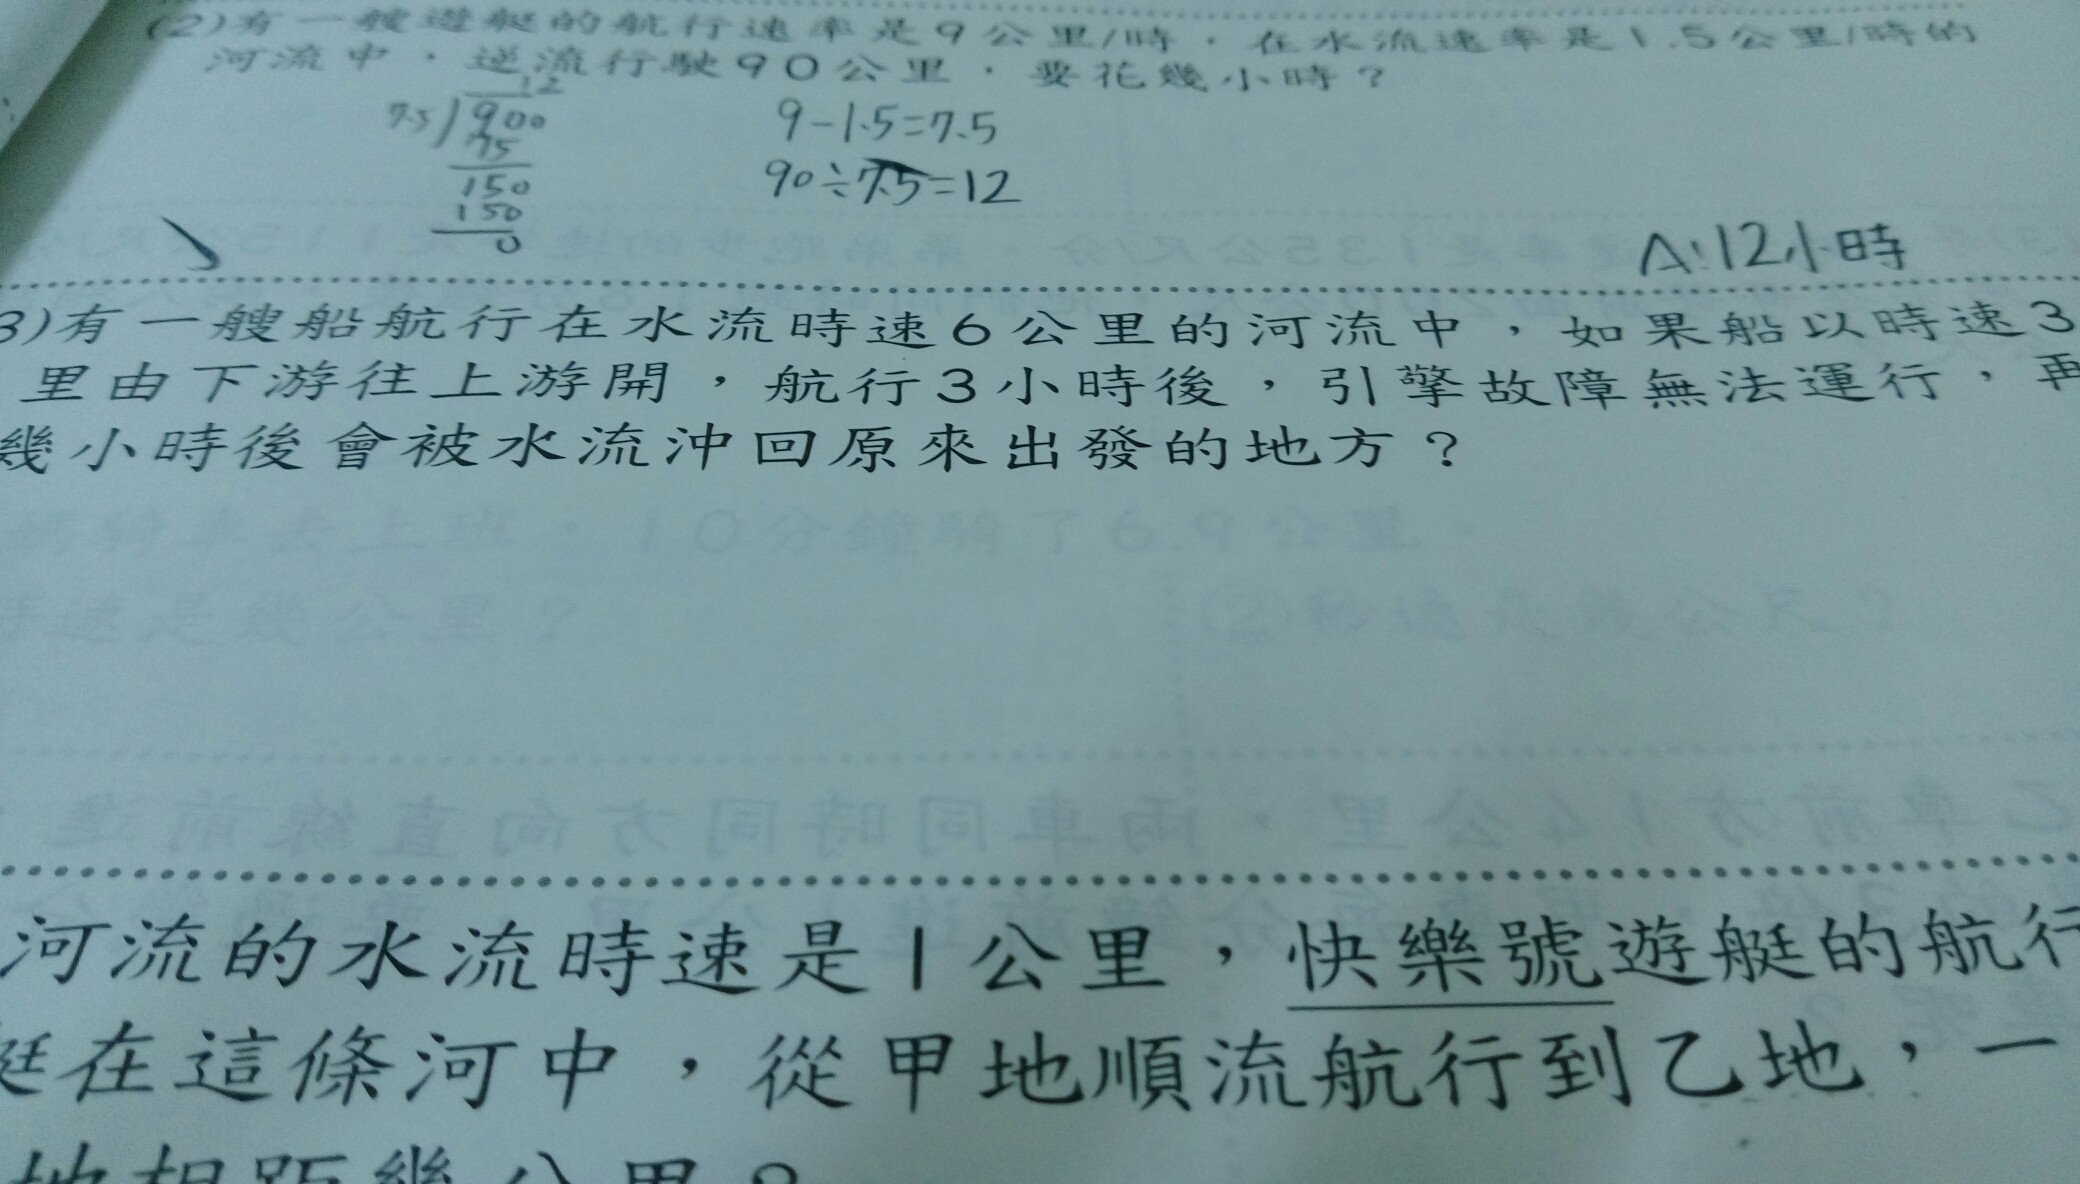 (2)有一艘遊艇的航行速率是9公里/時，在水流速率是1.5公里/時的
河流中，逆流行駛90公里，要花幾小時？
12
7.5 900
75
150
150
0
9-1.5=7.5
90÷7.5=12
A:12小時
3)有一艘船航行在水流時速6公里的河流中，如果船以時速3
里由下游往上游開，航行3小時後，引擎故障無法運行，再
幾小時後會被水流沖回原來出發的地方？
河流的水流時速是1公里，快樂號遊艇的航行
艇在這條河中，從甲地順流航行到乙地，一
地相距幾公里？